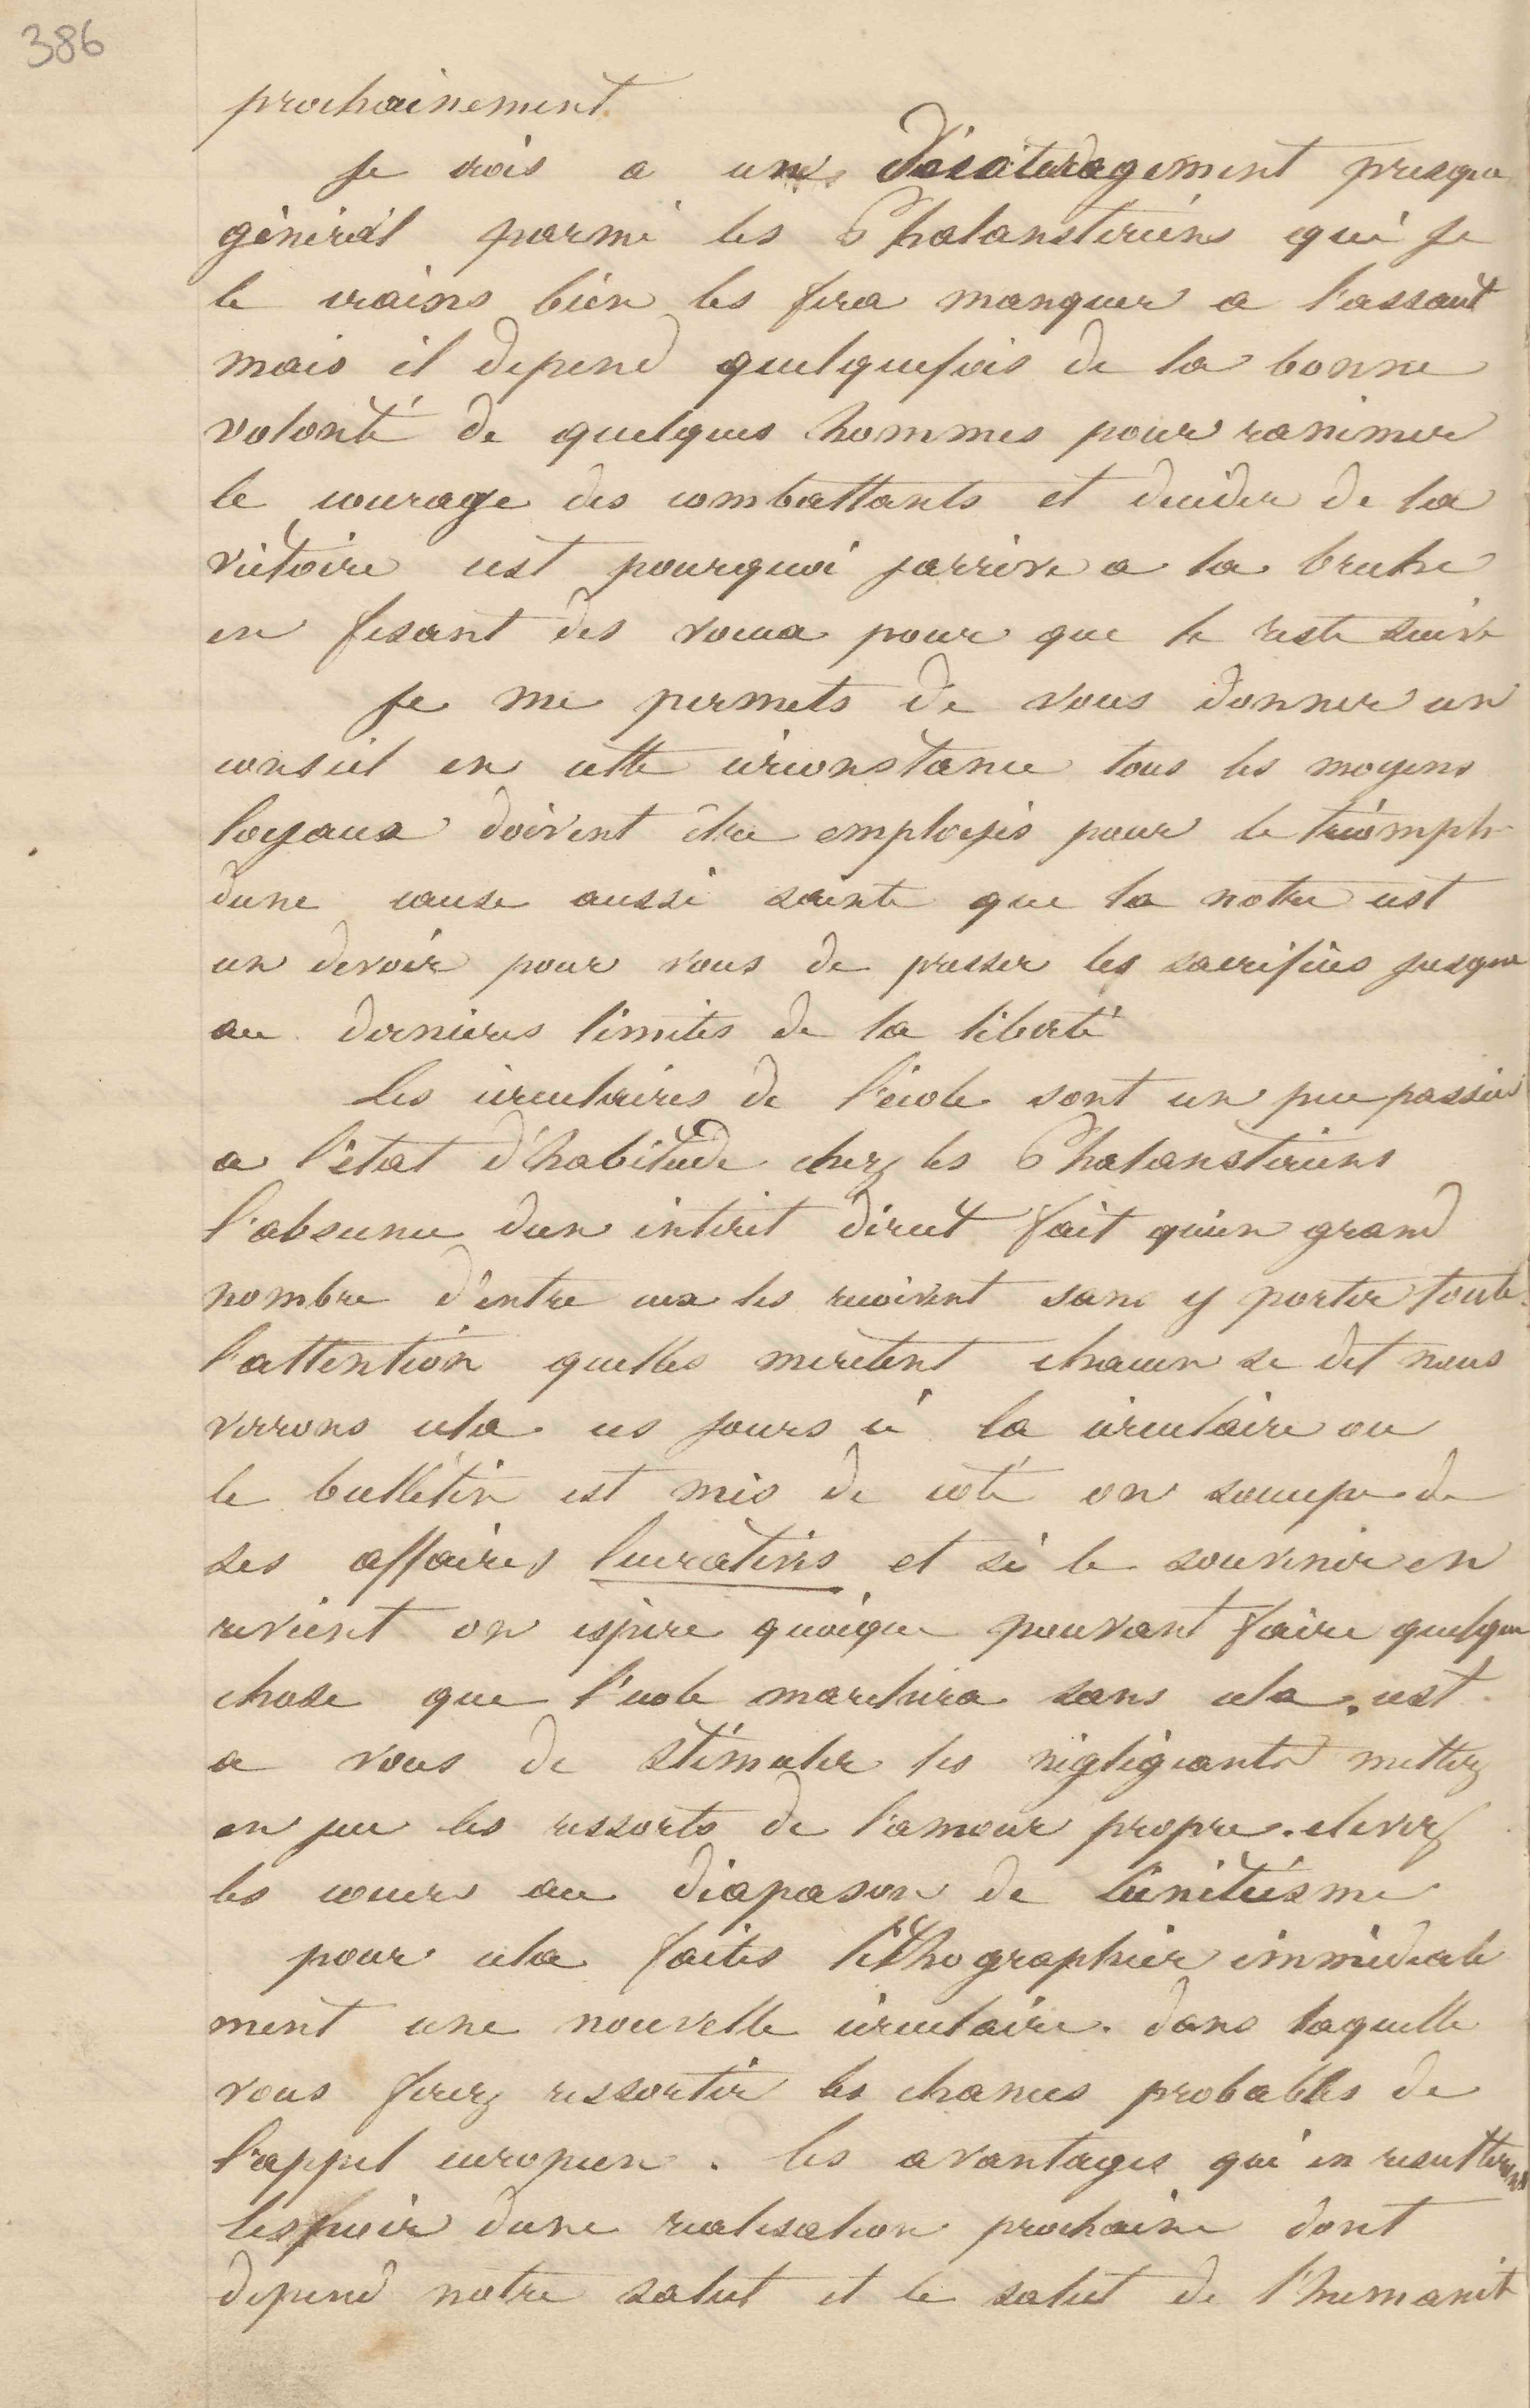 386
prochainement
Je crois a un décatudagement presque
général parmi les Phalansteriens qui je
le crains bien les fera manquer a l'assaut
mais il depend quelquefois de la bonne
volonté de quelques hommes pour ranimer
le courage des combattants et decider de la
victoire cest pourquoi jarrive a la breche
en fesant des voeux pour que le reste suive
Je me permets de vous donner un
conseil en cette circonstance tous les moyens
loyaux doivent être employés pour le triomphe
dune cause aussi sainte que la notre cest
un devoir pour vous de presser les sacrifices jusque
au dernieres limites de la liberté
Les circulaires de l'école sont un peu passées
a l'état d'habitude chez les Phalansteriens
l'absence dun interet direct fait qu'un grand
nombre d'entre eux les recoivent sans y porter toute
l'attention quelles meritent chacun se dit nous
verrons cela ces jours ci la circulaire ou
le bulletin est mis de coté on soccupe de
ses affaires lucratives et si le souvenir en
revient on espere quoique pouvant faire quelque
chose que l'ecole marchera sans cela. cest
a vous de stimuler les négligeants mettez
en jeu les ressorts de l'amour propre. elevez
les coeurs au diapason de lunitéisme
pour cela faites lithographier immediate
ment une nouvelle circulaire. dans laquelle
vous ferez ressortir les chances probables de
l'appel europeen. les avantages qui en resulterons
lespoir dune realisation prochaine dont
depend notre salut et le salut de l'humanité